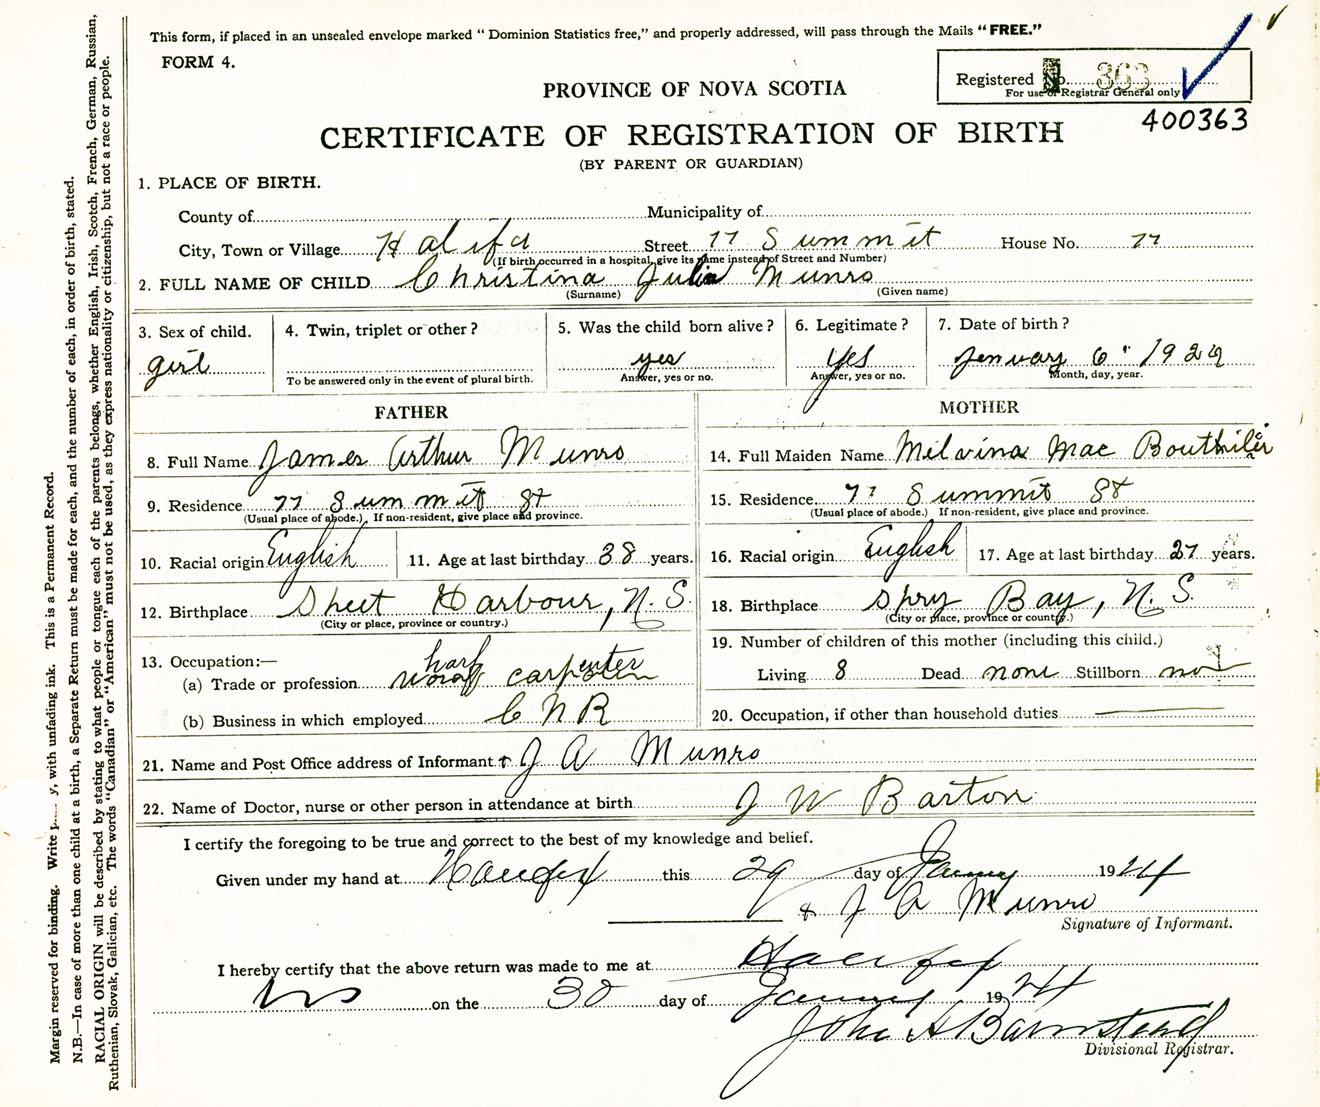 This form, if placed in an unsealed envelope marked "Dominion Statistics free," and properly addressed, will pass through the Mails "FREE."
FORM 4.
Registered No. 363
For use of Registrar General only
400363
PROVINCE OF NOVA SCOTIA
CERTIFICATE OF REGISTRATION OF BIRTH
(BY PARENT OR GUARDIAN)
1. PLACE OF BIRTH.
County of Municipality of
City, Town or Village Halifa Street 77 Summit House No. 77
(If birth occurred in a hospital, give its name instead of Street and Number)
2. FULL NAME OF CHILD Christina Julia Munro
(Surname) (Given name)
3. Sex of child. 4. Twin, triplet or other? 5. Was the child born alive? 6. Legitimate? 7. Date of birth?
girl yes yes January 6" 1924
To be answered only in the event of plural birth. Answer, yes or no. Answer, yes or no. Month, day, year.
FATHER MOTHER
8. Full Name James Arthur Munro 14. Full Maiden Name Melvina Mae Bouthilier
9. Residence 77 Summit St 15. Residence 77 Summit St
(Usual place of abode.) If non-resident, give place and province. (Usual place of abode.) If non-resident, give place and province.
10. Racial origin English 11. Age at last birthday 38 years. 16. Racial origin English 17. Age at last birthday 27 years.
12. Birthplace Sheet Harbour, N.S. 18. Birthplace Spry Bay, N.S.
(City or place, province or country.) (City or place, province or country.)
13. Occupation:— 19. Number of children of this mother (including this child.)
(a) Trade or profession wharf carpenter Living 8 Dead none Stillborn no
(b) Business in which employed C N R 20. Occupation, if other than household duties
21. Name and Post Office address of Informant J A Munro
22. Name of Doctor, nurse or other person in attendance at birth J W Barton
I certify the foregoing to be true and correct to the best of my knowledge and belief.
Given under my hand at Halifax this 29 day of January 1924
J A Munro
Signature of Informant.
I hereby certify that the above return was made to me at Halifax
NS on the 30 day of January 1924
John A Barnstead
Divisional Registrar.
Margin reserved for binding. Write y, with unfading ink. This is a Permanent Record.
N.B.—In case of more than one child at a birth, a Separate Return must be made for each, and the number of each, in order of birth, stated.
RACIAL ORIGIN will be described by stating to what people or tongue each of the parents belongs, whether English, Irish, Scotch, French, German, Russian,
Ruthenian, Slovak, Galician, etc. The words "Canadian" or "American" must not be used, as they express nationality or citizenship, but not a race or people.